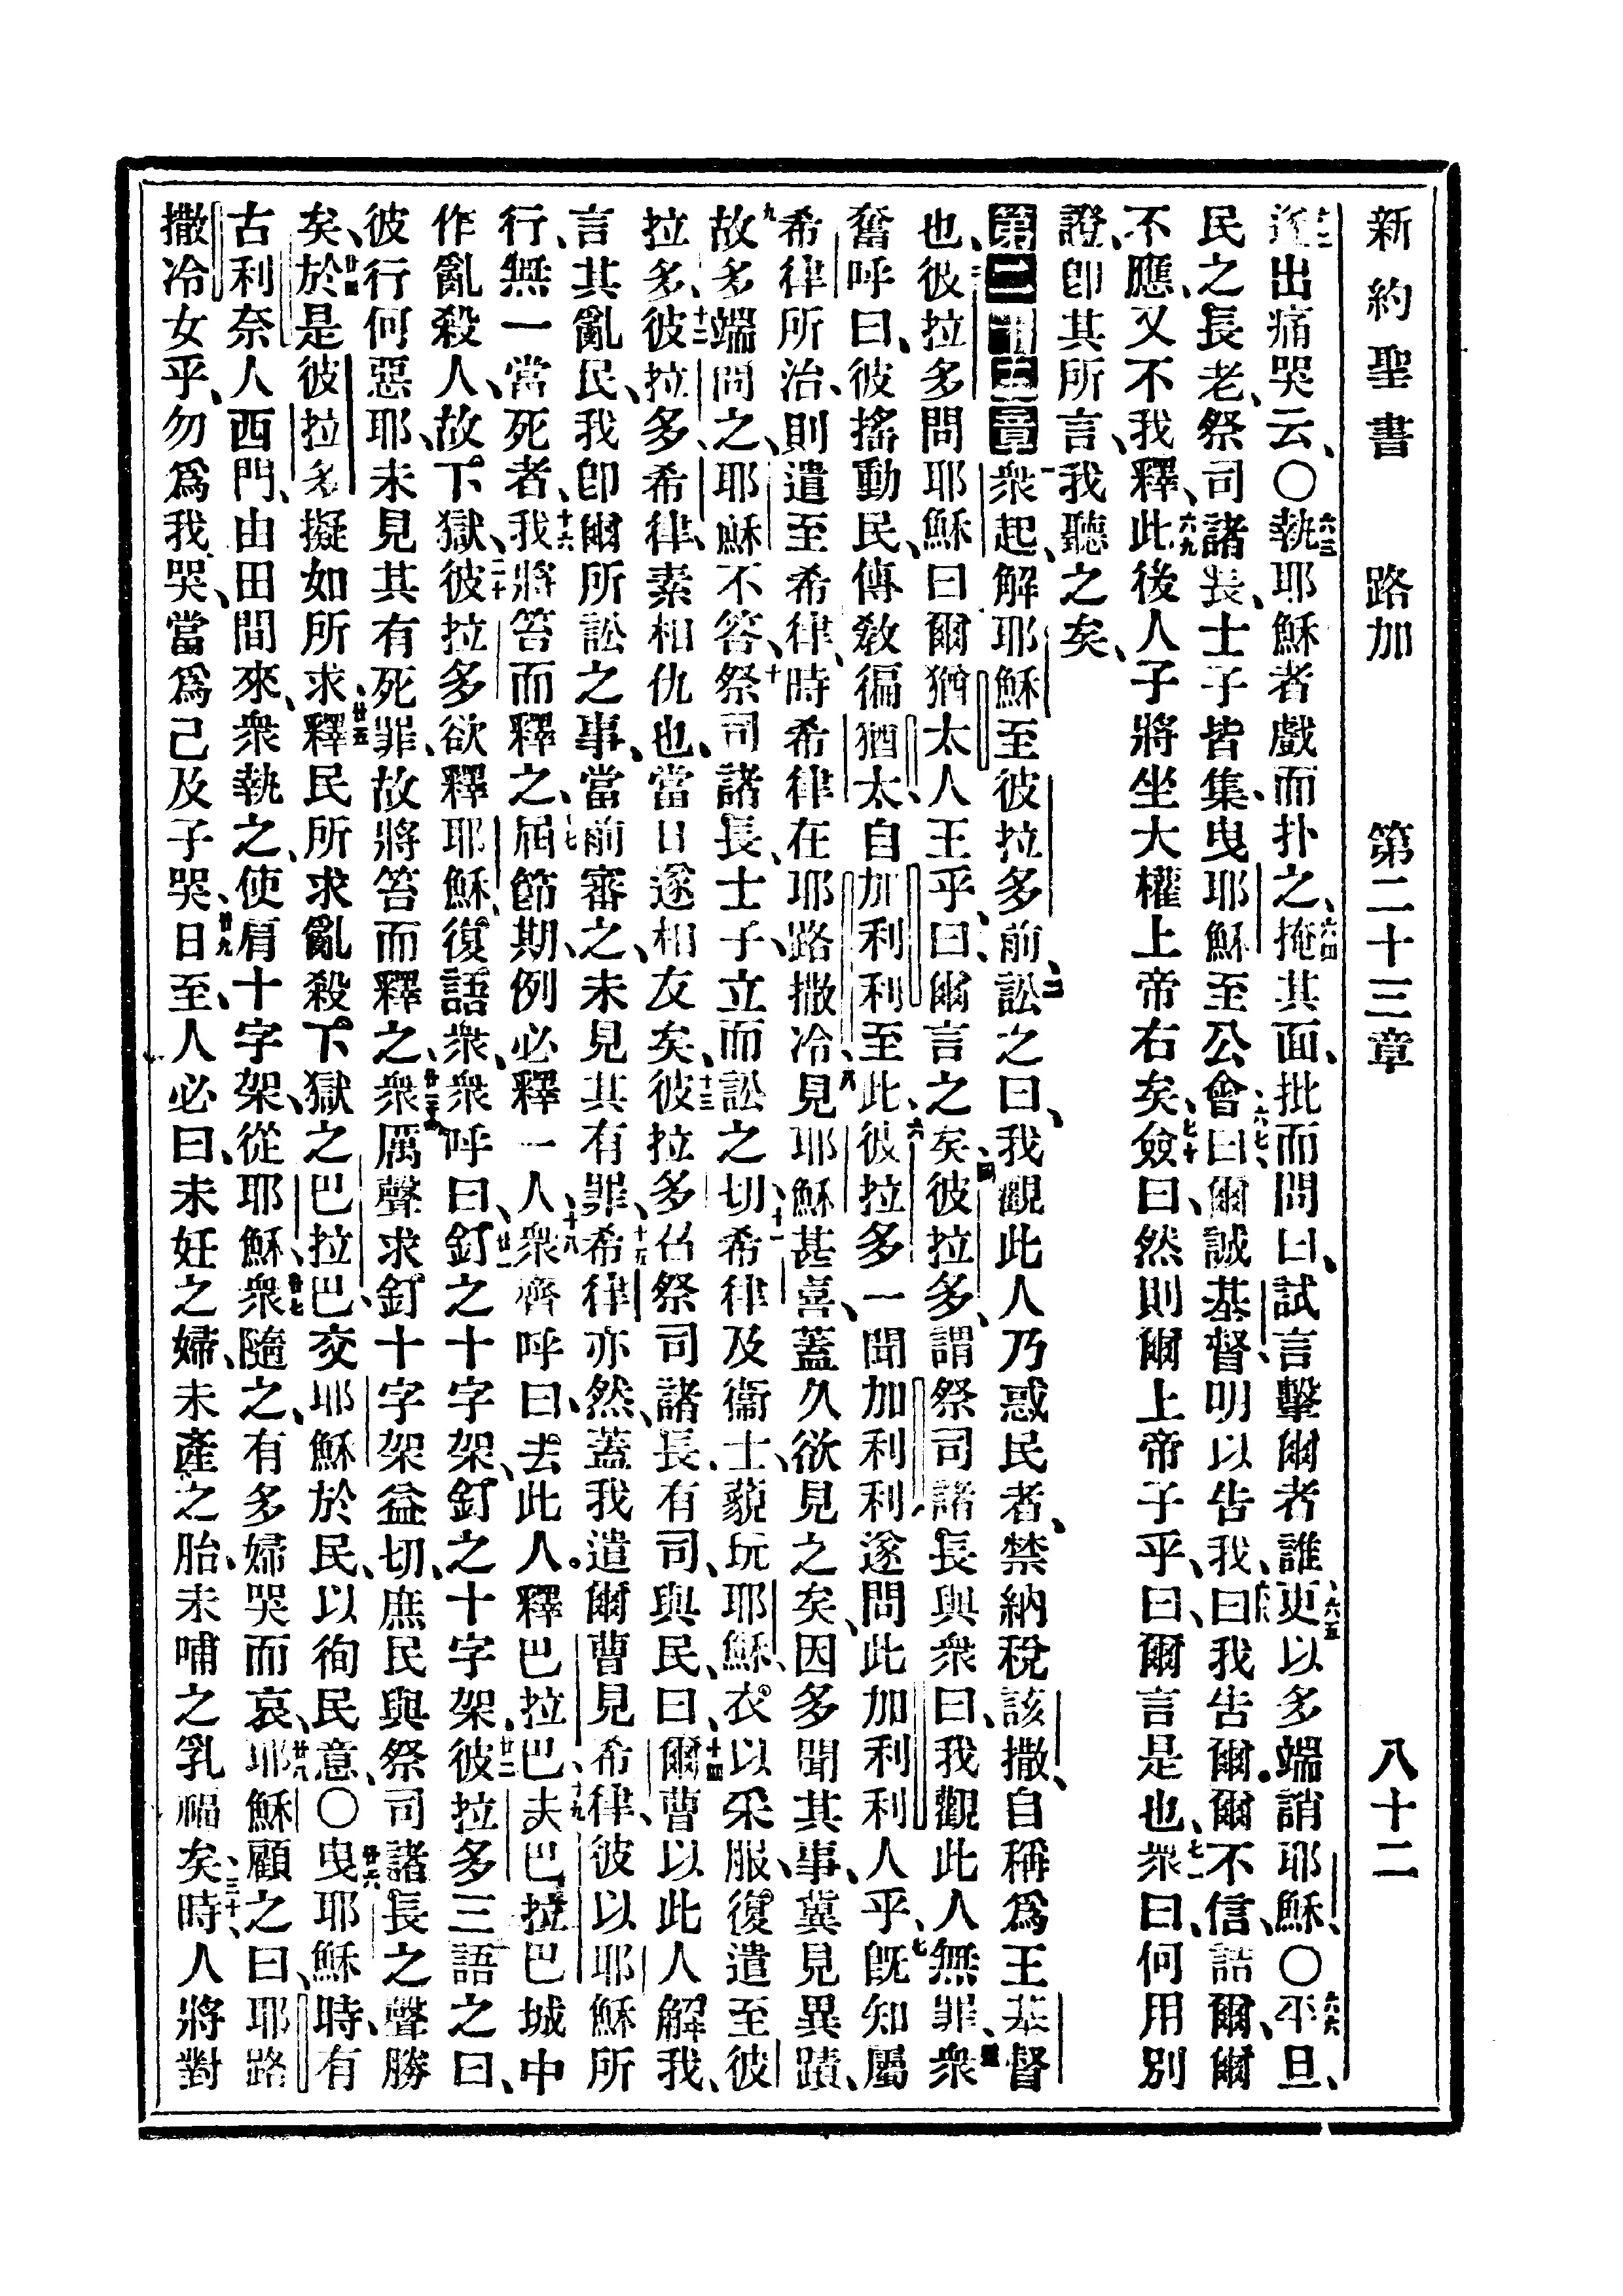 新約聖書　路加　第二十三章　八十二
六二遂出痛哭云、〇六三執耶穌者戲而扑之、六四掩其面、批而問曰、試言擊爾者誰、六五更以多端誚耶穌、〇六六平旦、
民之長老、祭司諸長、士子皆集、曳耶穌至公會、六七曰、爾誠基督、明以告我、曰、我告爾、爾不信、六八詰爾、爾
不應、又不我釋、六九此後人子將坐大權上帝右矣、七十僉曰、然則爾上帝子乎、曰、爾言是也、七一衆曰、何用別
證、卽其所言、我聽之矣、
第二十三章一衆起、解耶穌至彼拉多前、二訟之曰、我觀此人乃惑民者、禁納稅該撒、自稱爲王基督
也、三彼拉多問耶穌曰、爾猶太人王乎、曰、爾言之矣、四彼拉多、謂祭司諸長與衆曰、我觀此人無罪、五衆
奮呼曰、彼搖動民、傳敎徧猶太、自加利利至此、六彼拉多一聞加利利、遂問此加利利人乎、七旣知屬
希律所治、則遣至希律、時希律在耶路撒冷、八見耶穌甚喜、蓋久欲見之矣、因多聞其事、冀見異蹟、
九故多端問之、耶穌不答、十祭司諸長、士子、立而訟之切、十一希律及衞士、藐玩耶穌、衣以采服、復遣至彼
拉多、十二彼拉多、希律、素相仇也、當日遂相友矣、十三彼拉多召祭司諸長、有司、與民、曰、十四爾曹以此人解我、
言其亂民、我卽爾所訟之事、當前審之、未見其有罪、十五希律亦然、蓋我遣爾曹見希律、彼以耶穌所
行、無一當死者、十六我將笞而釋之、十七屆節期、例必釋一人、十八衆齊呼曰、去此人。釋巴拉巴、十九夫巴拉巴城中
作亂殺人、故下獄、二十彼拉多欲釋耶穌、復語衆、廿一衆呼曰、釘之十字架、釘之十字架、廿二彼拉多三語之曰、
彼行何惡耶、未見其有死罪、故將笞而釋之、廿三衆厲聲求釘十字架益切、庶民與祭司諸長之聲勝
矣、廿四於是彼拉多擬如所求、廿五釋民所求亂殺下獄之巴拉巴、交耶穌於民、以徇民意、〇廿六曳耶穌時、有
古利奈人西門、由田間來、衆執之、使肩十字架、從耶穌、廿七衆隨之、有多婦哭而哀、廿八耶穌顧之曰、耶路
撒冷女乎、勿爲我哭、當爲己及子哭、廿九日至、人必曰、未妊之婦、未產之胎、未哺之乳福矣、三十時、人將對